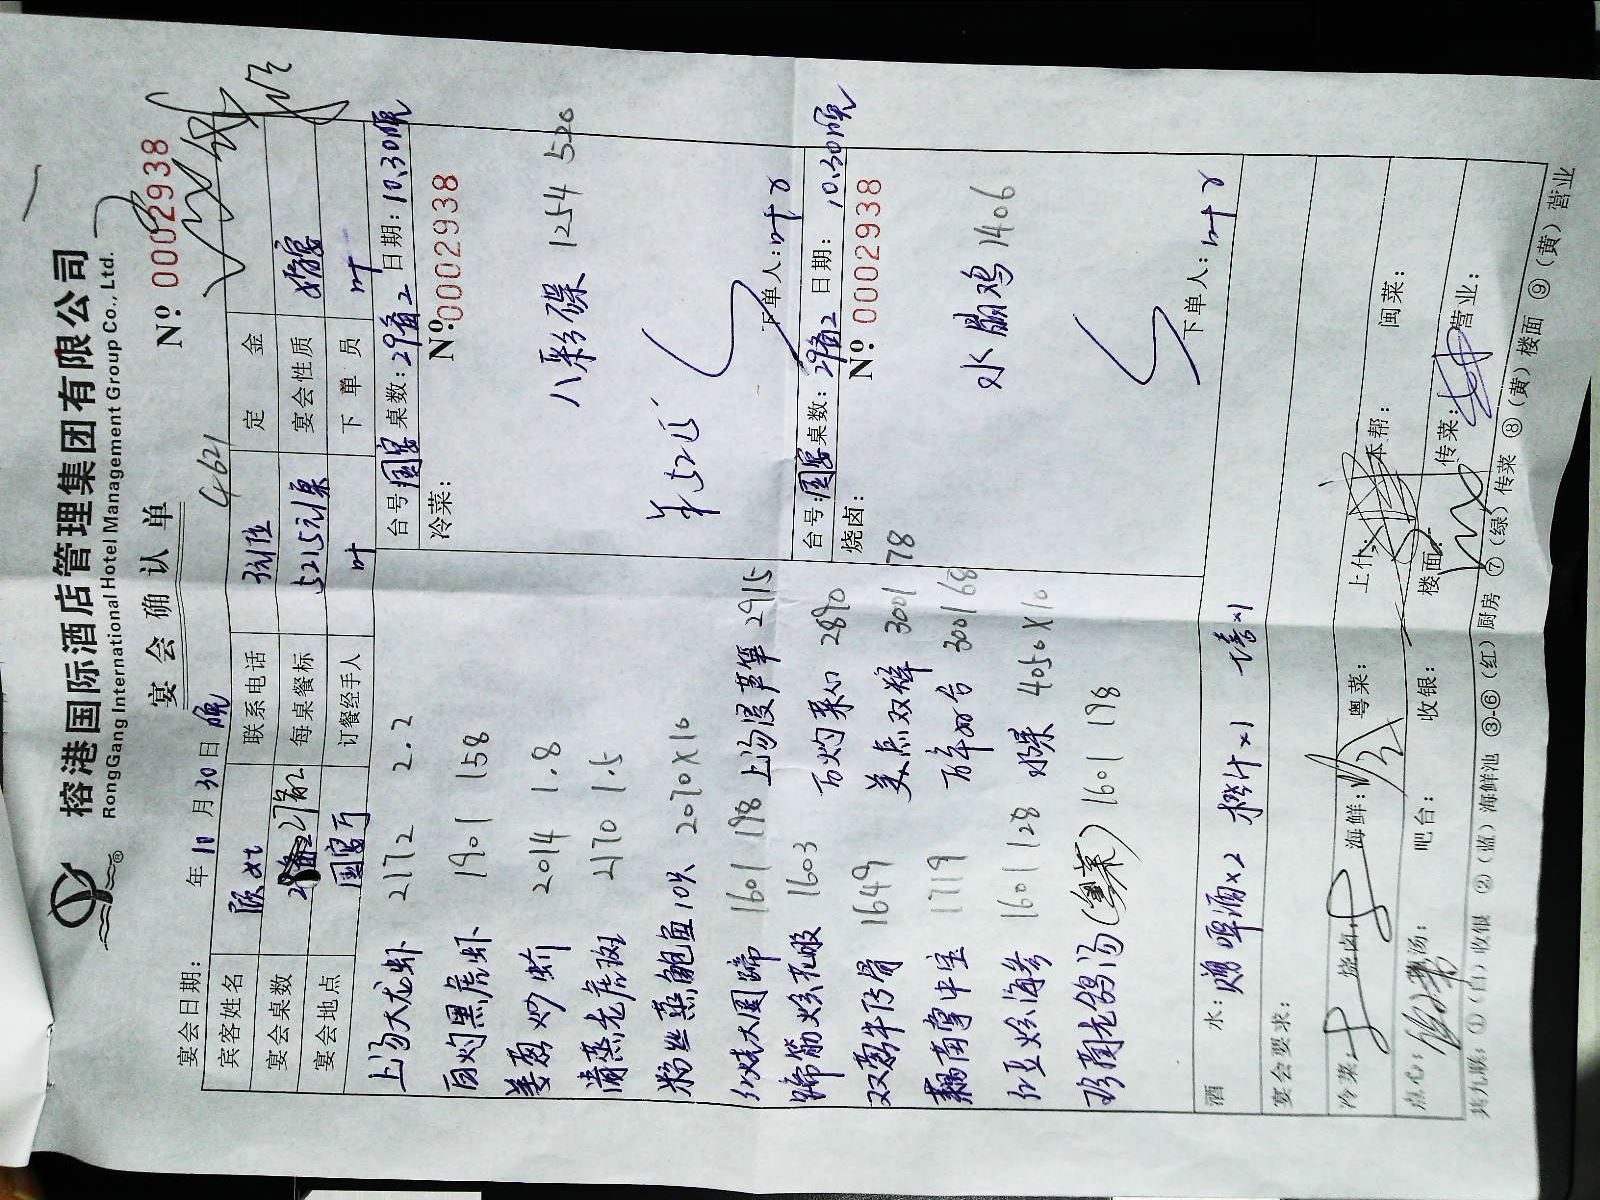 榕港国际酒店管理集团有限公司
RongGang International Hotel Management Group Co., Ltd.
宴会确认单
Nº 0002938
4621
宴会日期: 年10月30日晚
宾客姓名 联系电话 定金
宴会桌数 每桌餐标 5215元/桌 宴会性质
宴会地点 国宴厅 订餐经手人 叶 下单员 叶
台号:国宴 桌数:29备2 日期:10.30晚
冷菜: Nº 0002938
八彩碟 1254 520
台号:国宴 桌数:29备2 日期:10.30晚
烧卤: Nº 0002938
水晶鸡 1406
下单人:叶
下单人:叶
上汤大龙虾 2172 2.2
白灼黑虎虾 1901 158
姜葱炒蟹 2014 1.8
清蒸老虎斑 2170 1.5
粉丝蒸鲍鱼10只 2070×10
红烧大圆蹄 1601 198
蹄筋烩花胶 1603
双葱牛仔骨 1649
1719
红豆烩海参 1601 128
老鸽汤(粤菜) 1601 198
上汤浸芦笋 2915
白灼菜心 2890
美点双辉 3001 78
3001 68
水果 4050×10
酒水: 啤酒×2 橙汁×1
宴会要求:
冷菜: 烧卤: 海鲜: 粤菜: 上什: 本帮: 闽菜:
点心: 汤: 吧台: 收银: 楼面: 传菜: 营业:
共九联: ①(白)收银 ②(蓝)海鲜池 ③-⑥(红)厨房 ⑦(绿)传菜 ⑧(黄)楼面 ⑨(黄)营业